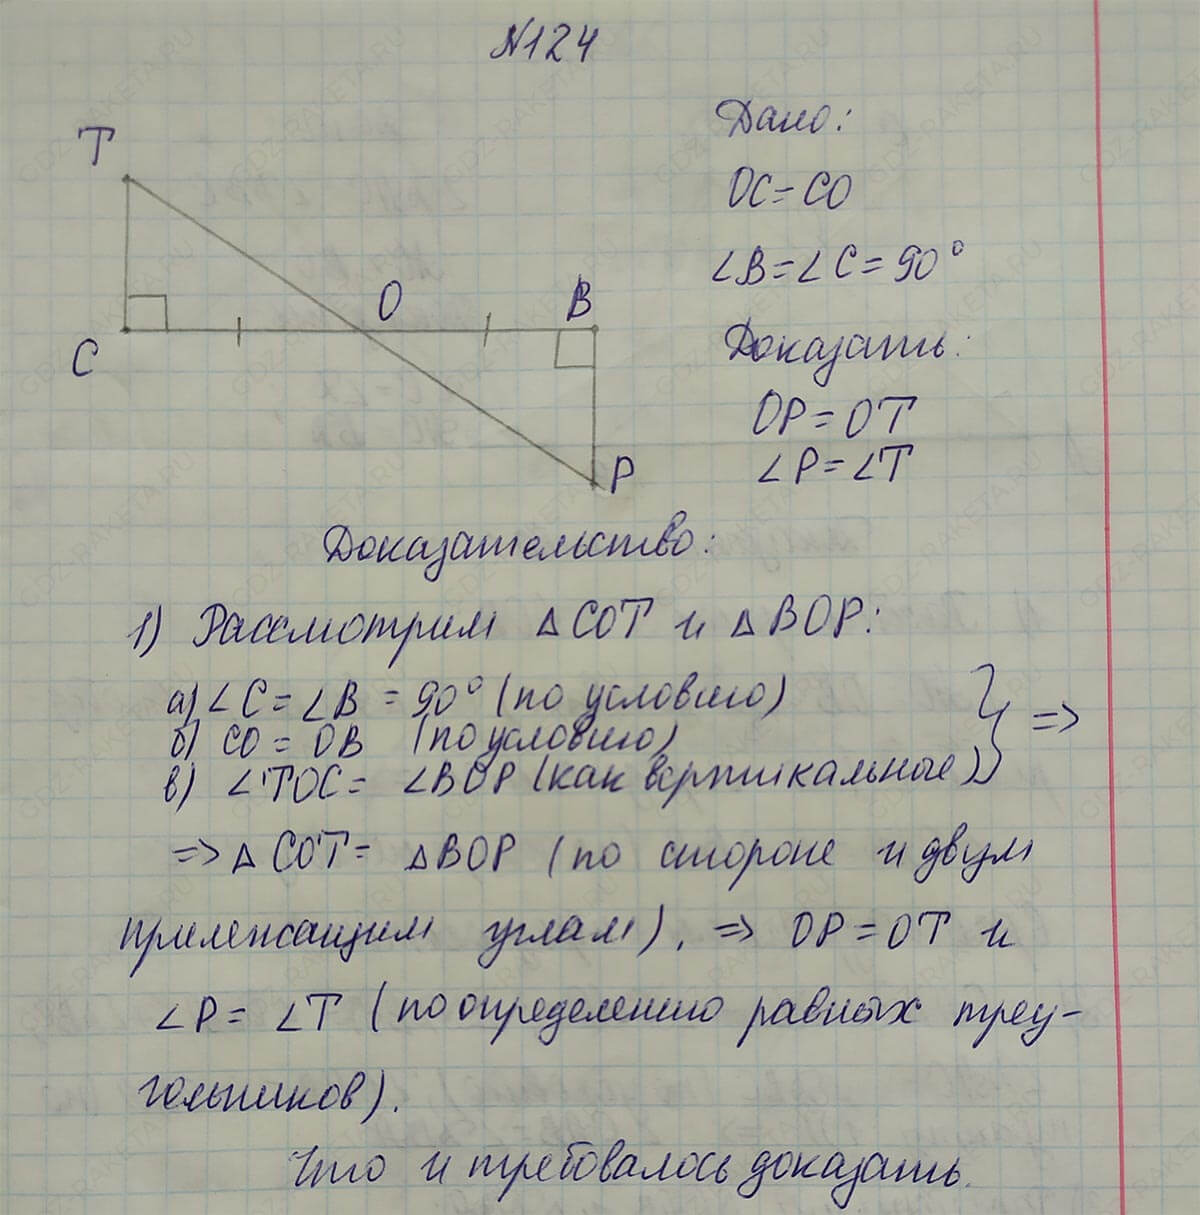 N124
T
O
B
C
P
Дано:
OC=CO
∠B=∠C=90°
Доказать:
OP=OT
∠P=∠T
Доказательство:
1) Рассмотрим △COT и △BOP:
а) ∠C=∠B=90° (по условию)
б) CO=OB (по условию)
в) ∠TOC=∠BOP (как вертикальные)
} =>
=> △COT=△BOP (по стороне и двум
прилежащим углам). => OP=OT и
∠P=∠T (по определению равных треу-
гольников).
Что и требовалось доказать.
GDZ-RAKETA.RU